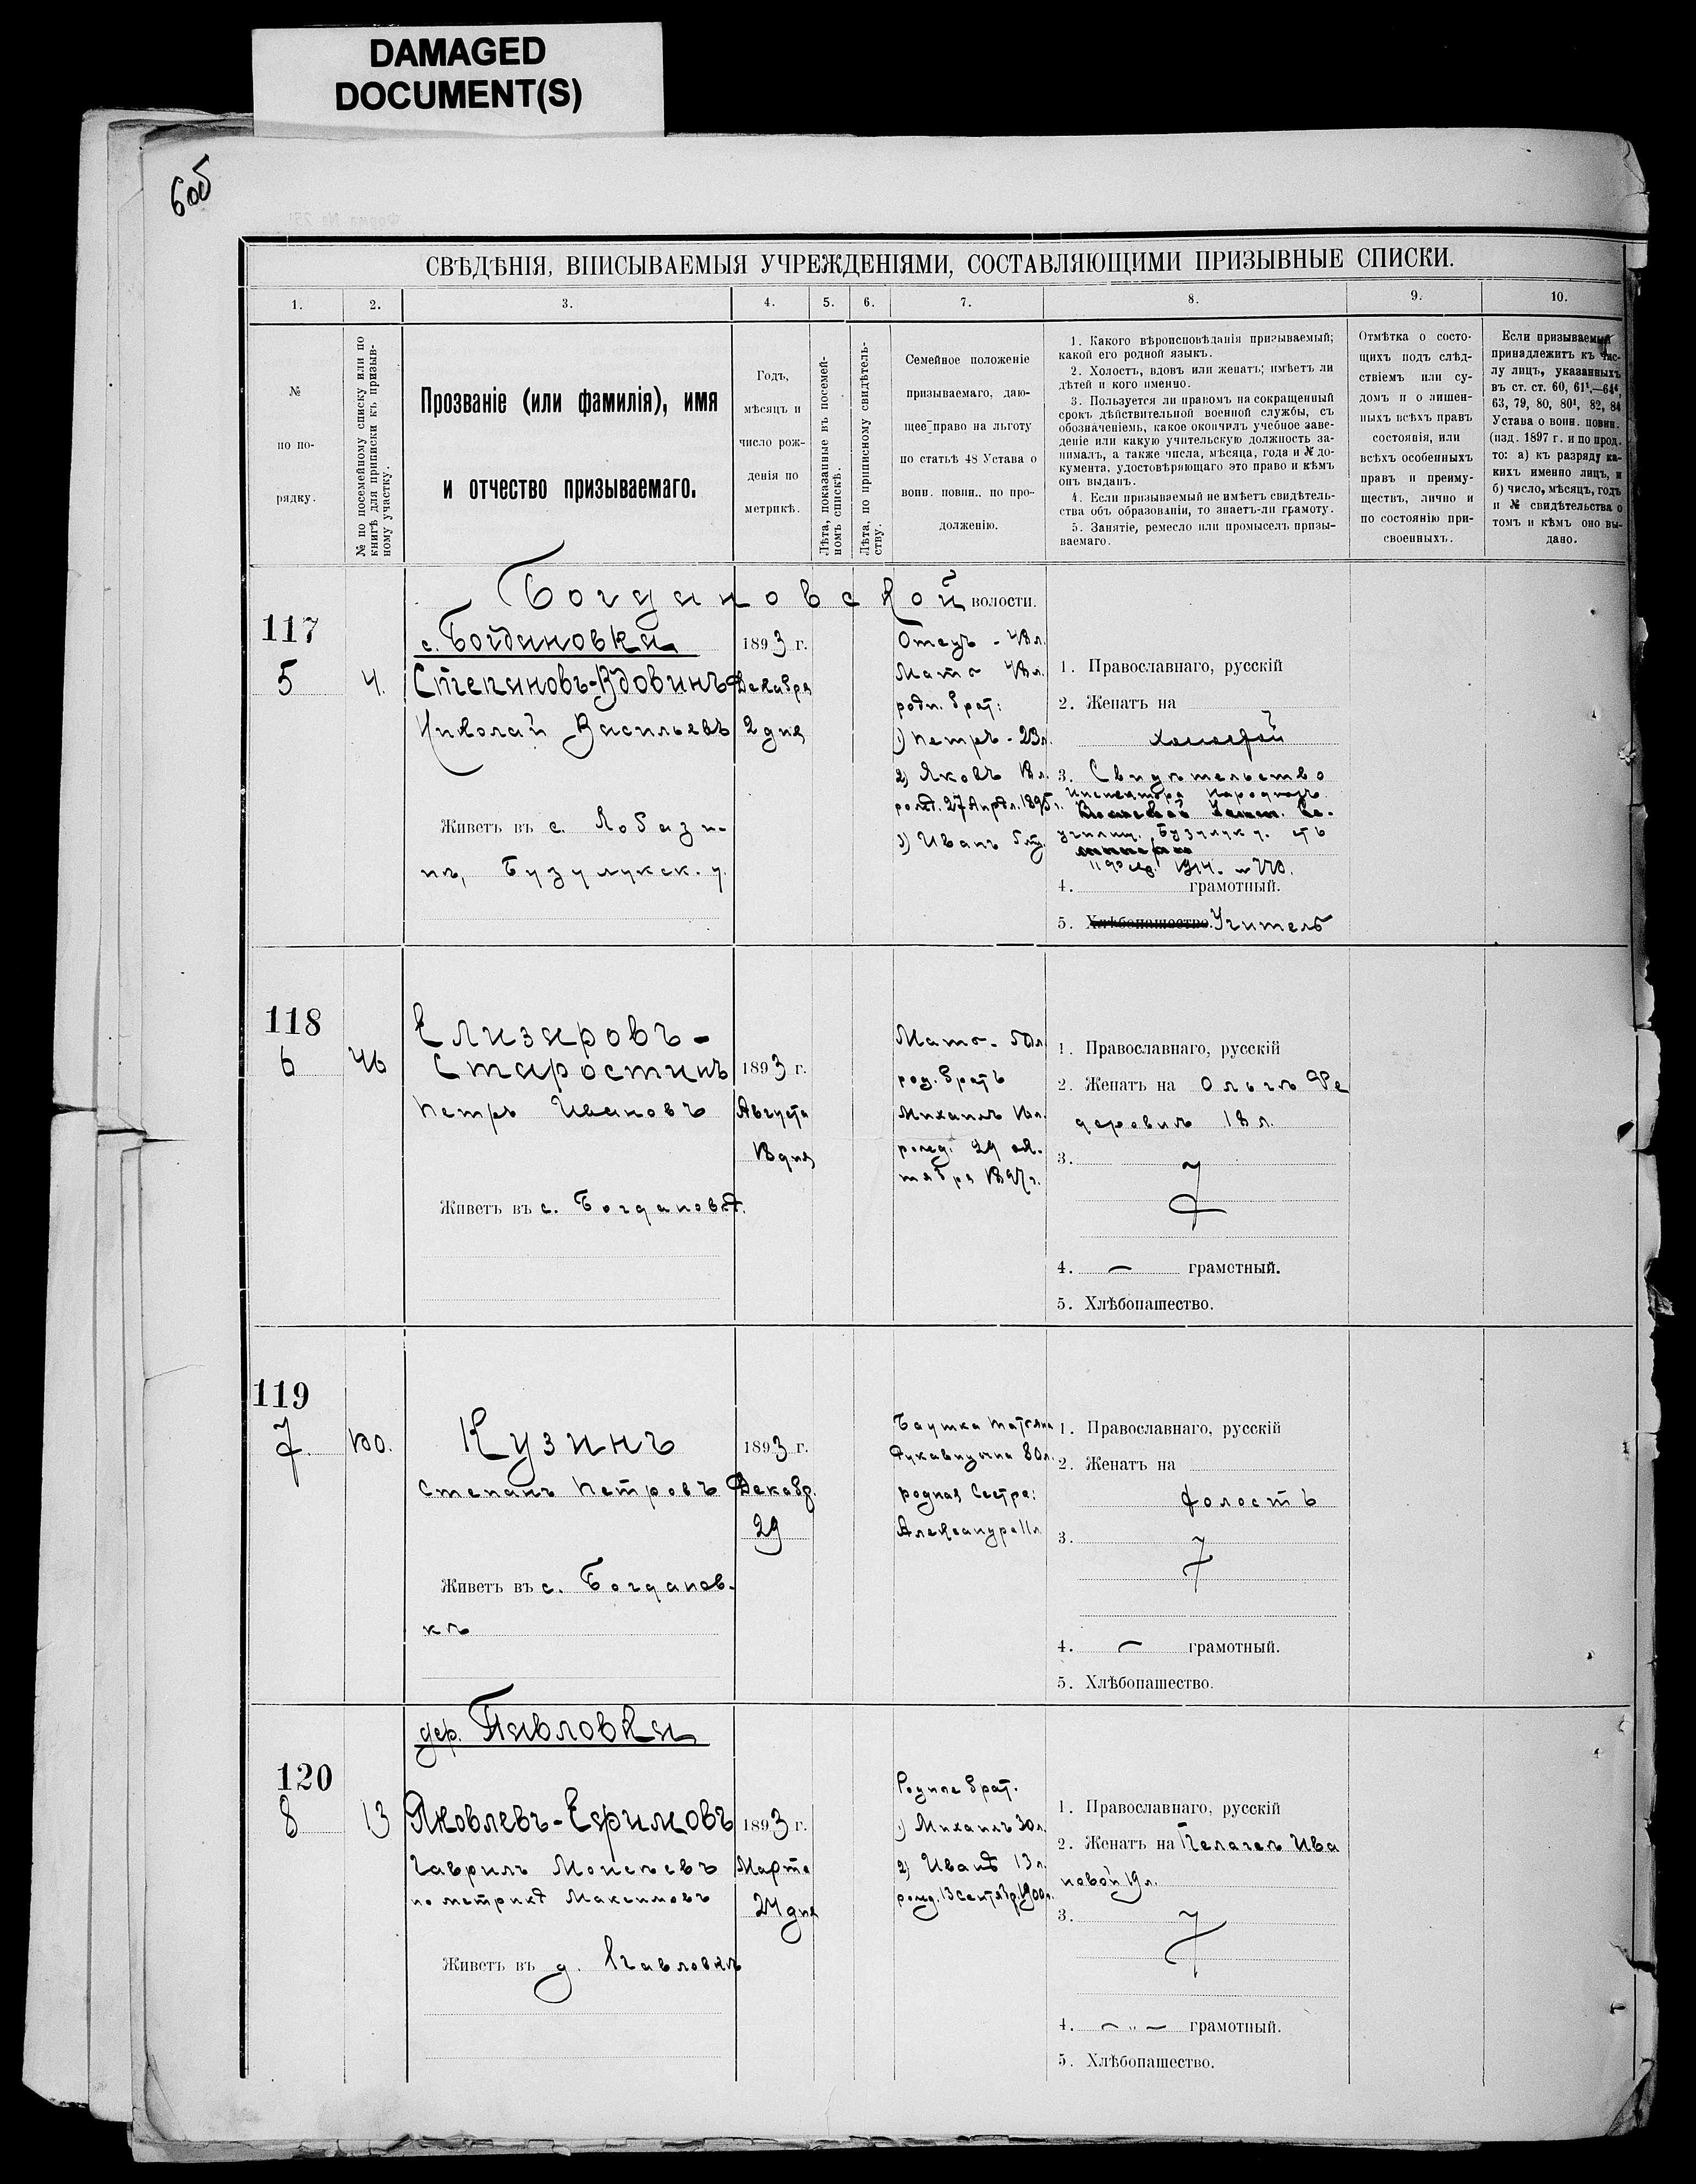 DAMAGED
DOCUMENT(S)
6об
СВѢДѢНІЯ, ВПИСЫВАЕМЫЯ УЧРЕЖДЕНІЯМИ, СОСТАВЛЯЮЩИМИ ПРИЗЫВНЫЕ СПИСКИ.
1. 2. 3. 4. 5. 6. 7. 8. 9. 10.
№
по по-
рядку.
№ по посемейному списку или по
книгѣ для приписки къ призыв-
ному участку.
Прозваніе (или фамилія), имя
и отчество призываемаго.
Годъ,
мѣсяцъ и
число рож-
денія по
метрикѣ.
Лѣта, показанные въ посемей-
номъ спискѣ.
Лѣта, по приписному свидѣтель-
ству.
Семейное положеніе
призываемаго, даю-
щее право на льготу
по статьѣ 48 Устава о
воин. повин., по про-
долженію.
1. Какого вѣроисповѣданія призываемый;
какой его родной языкъ.
2. Холостъ, вдовъ или женатъ; имѣетъ ли
дѣтей и кого именно.
3. Пользуется ли правомъ на сокращенный
срокъ дѣйствительной военной службы, съ
обозначеніемъ, какое окончилъ учебное заве-
деніе или какую учительскую должность за-
нималъ, а также числа, мѣсяца, года и № до-
кумента, удостовѣряющаго это право и кѣмъ
онъ выданъ.
4. Если призываемый не имѣетъ свидѣтель-
ства объ образованіи, то знаетъ-ли грамоту.
5. Занятіе, ремесло или промыселъ призы-
ваемаго.
Отмѣтка о состо-
щихъ подъ слѣд-
ствіемъ или су-
домъ и о лишен-
ныхъ всѣхъ правъ
состоянія, или
всѣхъ особенныхъ
правъ и преиму-
ществъ, лично и
по состоянію при-
своенныхъ.
Если призываемый
принадлежитъ къ чис-
лу лицъ, указанныхъ
въ ст. ст. 60, 61¹,—64⁴,
63, 79, 80, 80¹, 82, 84
Устава о воин. повин.
(изд. 1897 г. и по прод.
то: а) къ разряду ка-
кихъ именно лицъ, и
б) число, мѣсяцъ, годъ
и № свидѣтельства о
томъ и кѣмъ оно вы-
дано.
Богдановской волости.
117
5
4.
с. Богдановка
Степановъ-Вдовинъ
Николай Васильевъ
Живетъ въ с. Лобази-
нѣ, Бузулукск. у.
1893 г.
Декабря
2 дня
Отецъ - 48 л.
Мать 48 л.
родн. брат:
1) Петръ - 23 л.
2) Яковъ 18 л.
рожд. 27 Апрѣл. 1895 г.
3) Иванъ
1. Православнаго, русскій
2. Женатъ на
холостой
3. Свидѣтельство
Инспектора Народныхъ
училищ. Бузулук. у. отъ
1914. № 220.
4. грамотный.
5. Хлѣбопашество. Учитель
118
6
46
Елизаровъ-
Старостинъ
Петръ Ивановъ
Живетъ въ с. Богдановкѣ.
1893 г.
Августа
18 дня
Мать - 50 л.
род. братъ
Михаилъ 16 л.
рожд. 29 ок-
тября 1897 г.
1. Православнаго, русскій
2. Женатъ на Ольгѣ Фе
деровнѣ 18 л.
3.
4. грамотный.
5. Хлѣбопашество.
119
7.
130.
Кузинъ
Степанъ Петровъ
Живетъ въ с. Богданов-
кѣ
1893 г.
Декабр.
29
Баушка Татьяна
Лукавишна 80 л.
родная Сестра:
Александра 11 л.
1. Православнаго, русскій
2. Женатъ на
холостъ
3.
4. грамотный.
5. Хлѣбопашество.
дер. Павловка
120
8
13
Яковлевъ-Ефимовъ
Гаврилъ Моисеевъ
по метрикѣ Максимовъ
Живетъ въ д. Павловкѣ
1893 г.
Марта
24 дня
Родные брат.
1) Михаилъ 30 л.
2) Иванъ 13 л.
рожд. 13 сентябр. 1900 г.
1. Православнаго, русскій
2. Женатъ на Пелагеѣ Ива
новой 19 л.
3.
4. грамотный.
5. Хлѣбопашество.